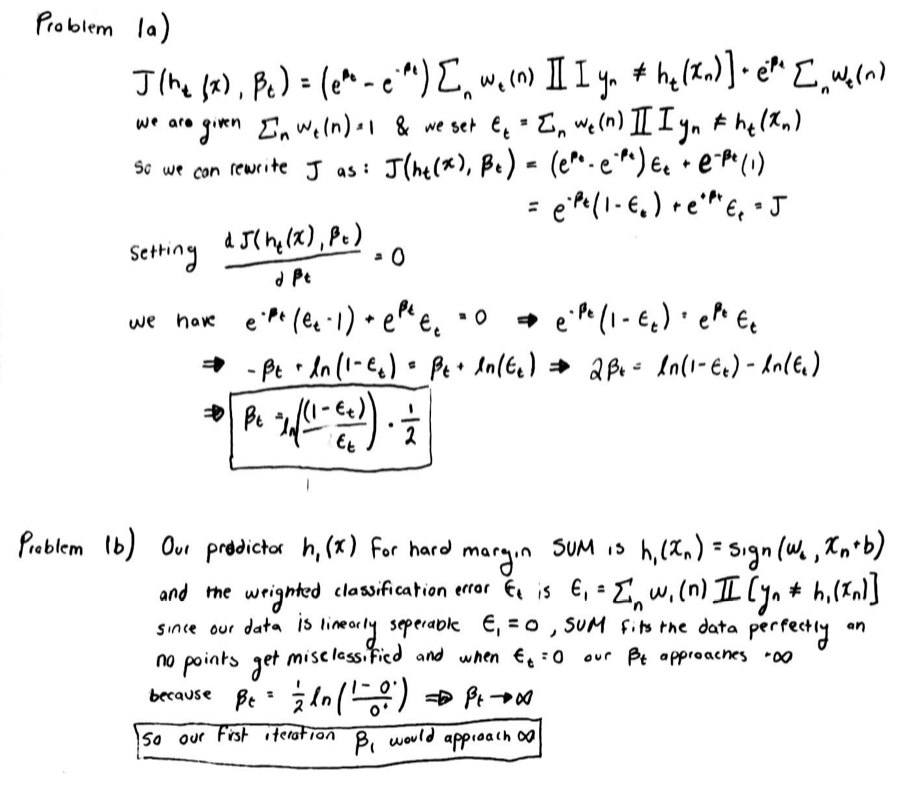 Problem 1a)
J(h_t(x), β_t) = (e^{β_t} - e^{-β_t}) Σ_n w_t(n) 𝕀 I y_n ≠ h_t(x_n)] + e^{-β_t} Σ_n w_t(n)
we are given Σ_n w_t(n) = 1 & we set ε_t = Σ_n w_t(n) 𝕀 I y_n ≠ h_t(x_n)
So we can rewrite J as: J(h_t(x), β_t) = (e^{β_t} - e^{-β_t}) ε_t + e^{-β_t}(1)
= e^{-β_t}(1-ε_t) + e^{+β_t} ε_t = J
Setting dJ(h_t(x), β_t) / dβ_t = 0
we have e^{-β_t}(ε_t - 1) + e^{β_t} ε_t = 0 ⇒ e^{-β_t}(1-ε_t) = e^{β_t} ε_t
⇒ -β_t + ln(1-ε_t) = β_t + ln(ε_t) ⇒ 2β_t = ln(1-ε_t) - ln(ε_t)
⇒ β_t = ln((1-ε_t)/ε_t) · 1/2
Problem 1b) Our preddictor h_1(x) for hard margin SUM is h_1(x_n) = sign(w_t, x_n+b)
and the weighted classification error ε_t is ε_1 = Σ_n w_1(n) 𝕀 [y_n ≠ h_1(x_n)]
since our data is linearly seperable ε_1 = 0, SUM fits the data perfectly an
no points get misclassified and when ε_t = 0 our β_t approaches +∞
because β_t = 1/2 ln((1-0^+)/0^+) ⇒ β_t → ∞
So our first iteration β_1 would approach ∞